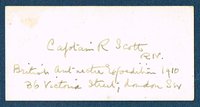 Captain R Scott
R.N.
British Antarctic Expedition 1910
36 Victoria Street, London SW